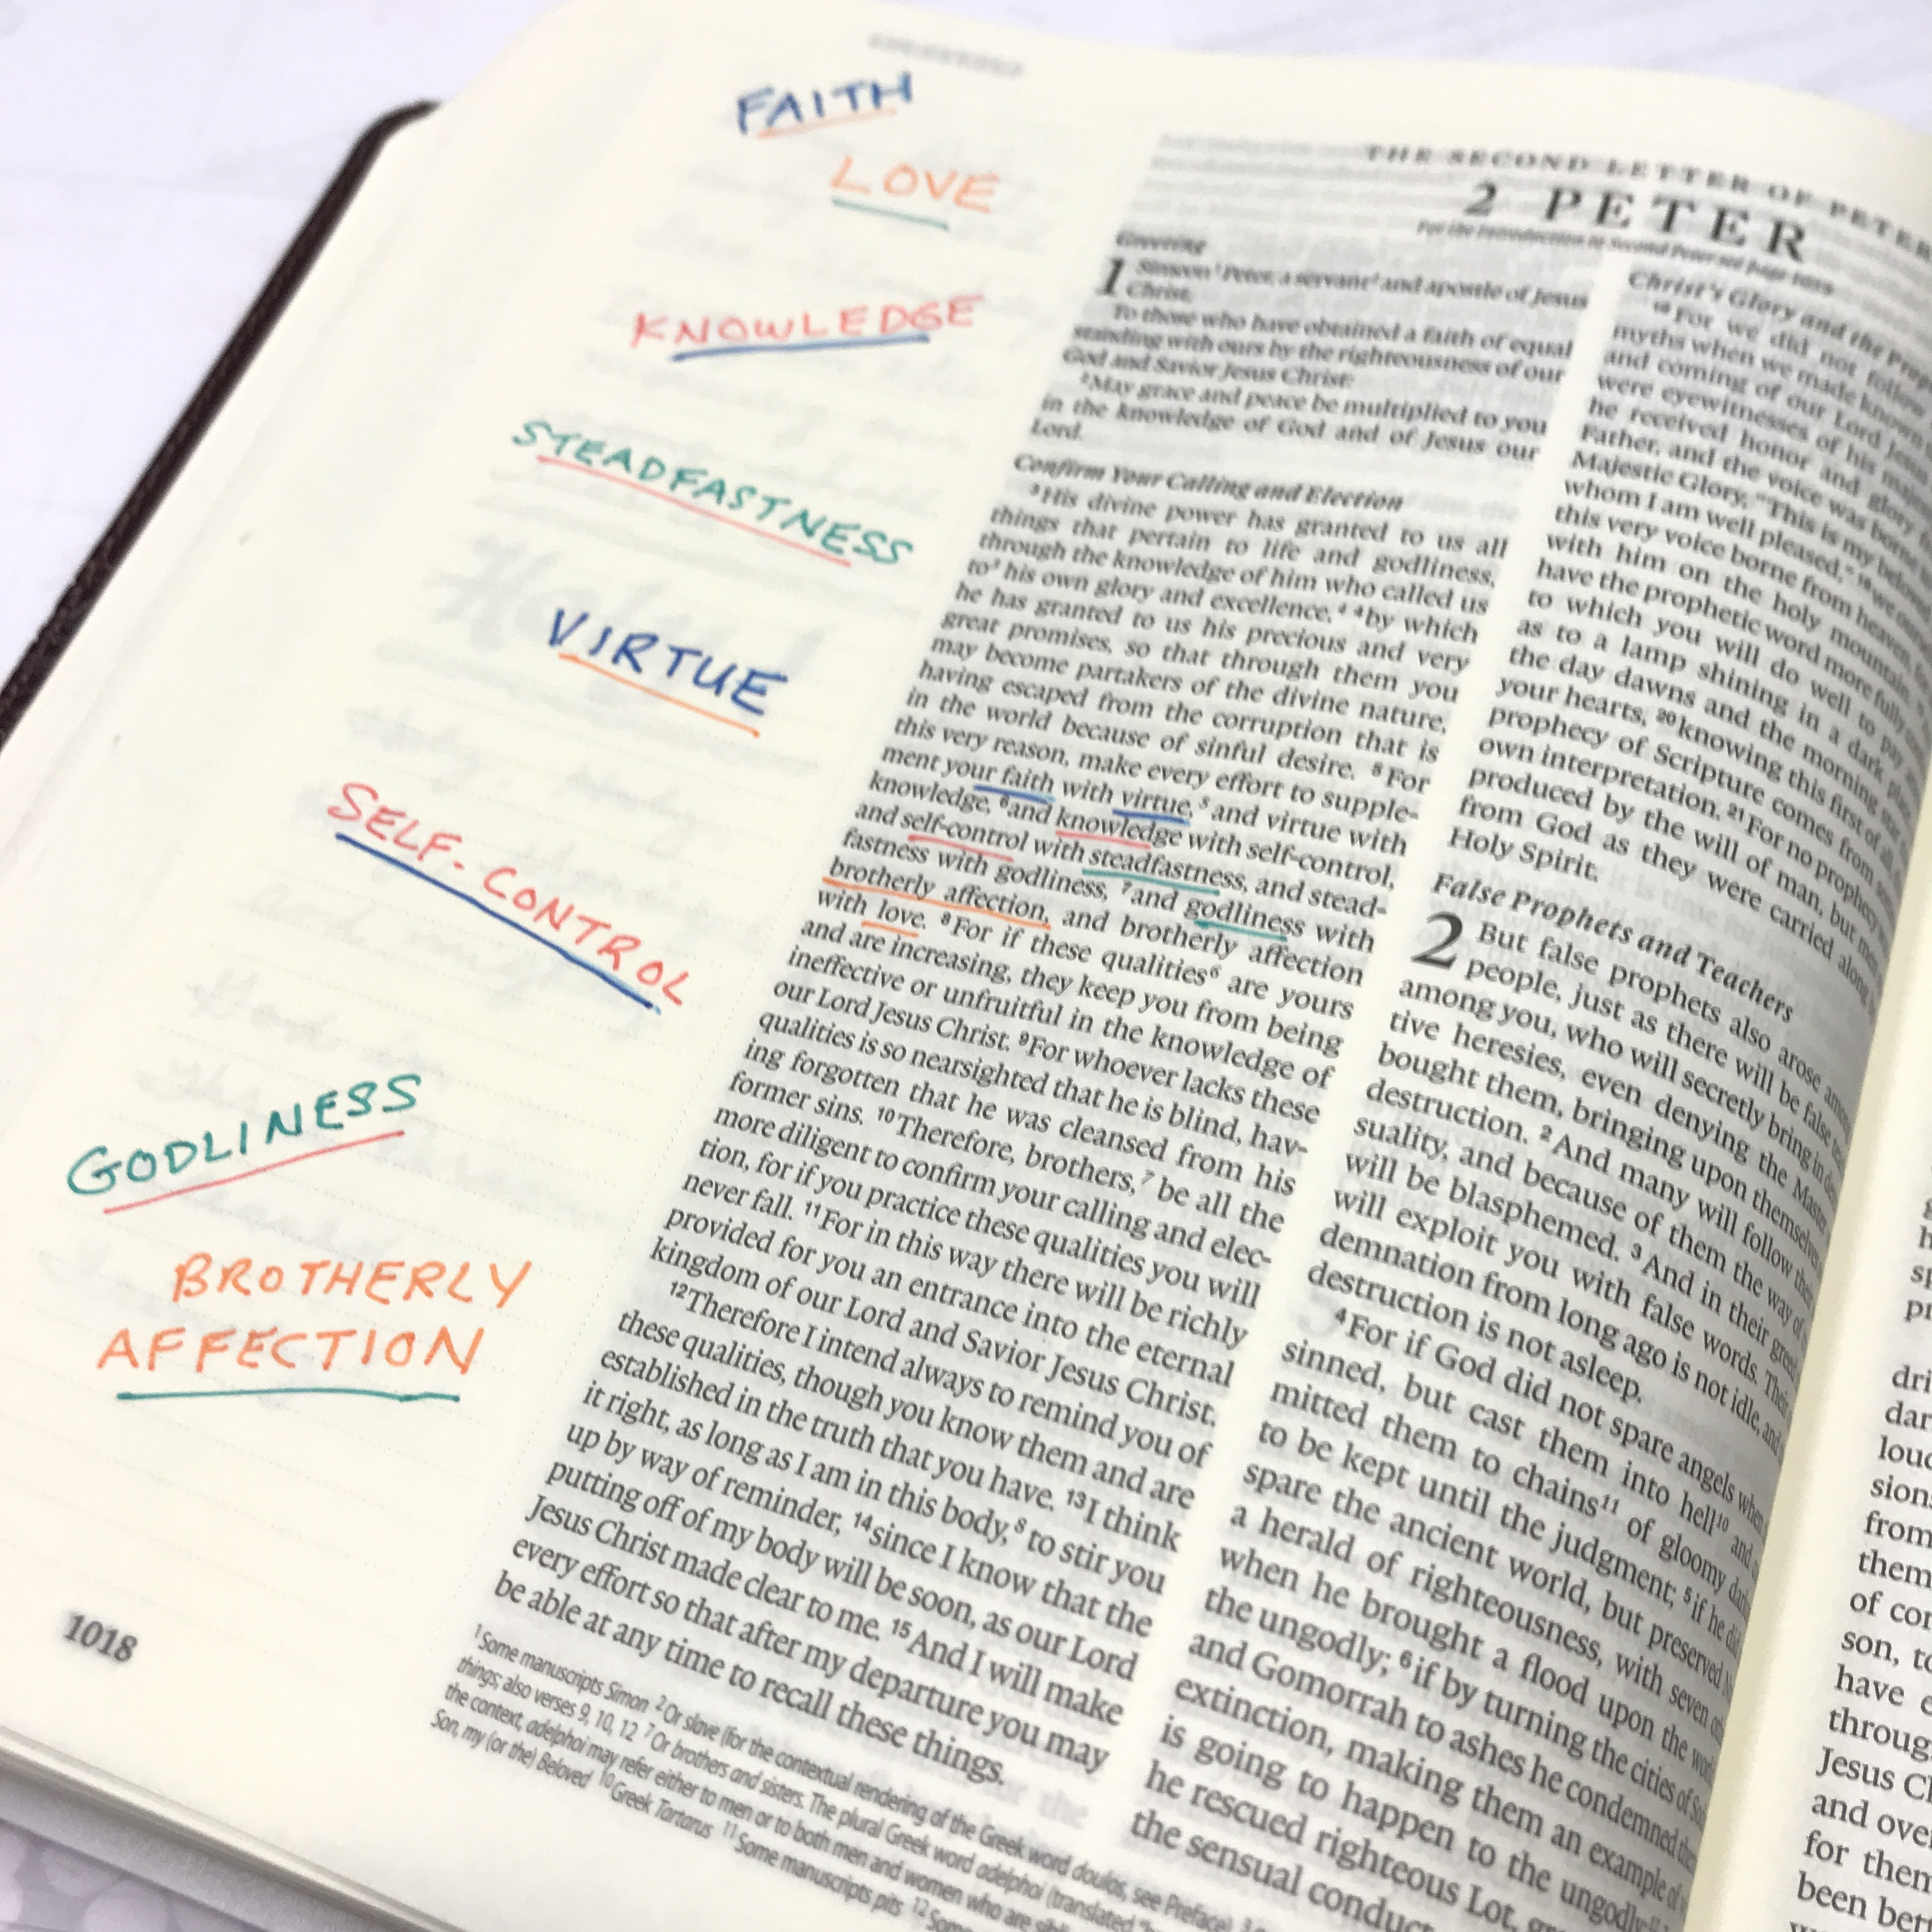 FAITH
LOVE
KNOWLEDGE
STEADFASTNESS
VIRTUE
SELF-CONTROL
GODLINESS
BROTHERLY
AFFECTION
1018
THE SECOND LETTER OF PETER
2 PETER
For the Introduction to Second Peter see page
Greeting
1 Simeon¹ Peter, a servant² and apostle of Jesus
Christ,
To those who have obtained a faith of equal
standing with ours by the righteousness of our
God and Savior Jesus Christ:
²May grace and peace be multiplied to you
in the knowledge of God and of Jesus our
Lord.
Confirm Your Calling and Election
³His divine power has granted to us all
things that pertain to life and godliness,
through the knowledge of him who called us
to³ his own glory and excellence,⁴ ⁴by which
he has granted to us his precious and very
great promises, so that through them you
may become partakers of the divine nature,
having escaped from the corruption that is
in the world because of sinful desire. ⁵For
this very reason, make every effort to supple-
ment your faith with virtue,⁵ and virtue with
knowledge, ⁶and knowledge with self-control,
and self-control with steadfastness, and stead-
fastness with godliness, ⁷and godliness with
brotherly affection, and brotherly affection
with love. ⁸For if these qualities⁶ are yours
and are increasing, they keep you from being
ineffective or unfruitful in the knowledge of
our Lord Jesus Christ. ⁹For whoever lacks these
qualities is so nearsighted that he is blind, hav-
ing forgotten that he was cleansed from his
former sins. ¹⁰Therefore, brothers,⁷ be all the
more diligent to confirm your calling and elec-
tion, for if you practice these qualities you will
never fall. ¹¹For in this way there will be richly
provided for you an entrance into the eternal
kingdom of our Lord and Savior Jesus Christ.
¹²Therefore I intend always to remind you of
these qualities, though you know them and are
established in the truth that you have. ¹³I think
it right, as long as I am in this body,⁸ to stir you
up by way of reminder, ¹⁴since I know that the
putting off of my body will be soon, as our Lord
Jesus Christ made clear to me. ¹⁵And I will make
every effort so that after my departure you may
be able at any time to recall these things.
Christ's Glory and the
¹⁶For we did not follow
myths when we made known
and coming of our Lord Jesus
were eyewitnesses of his
he received honor and glory
Father, and the voice was borne
Majestic Glory, "This is my beloved
whom I am well pleased," ¹⁸we
this very voice borne from heaven,
with him on the holy mountain.
have the prophetic word more fully
to which you will do well to pay
as to a lamp shining in a dark
the day dawns and the morning star
your hearts, ²⁰knowing this first of all,
prophecy of Scripture comes from
own interpretation. ²¹For no prophecy
produced by the will of man, but men
from God as they were carried along
Holy Spirit.
False Prophets and Teachers
2 But false prophets also arose among
people, just as there will be false
among you, who will secretly bring in
tive heresies, even denying the Master
bought them, bringing upon themselves
destruction. ²And many will follow their
suality, and because of them the way of
will be blasphemed. ³And in their greed
will exploit you with false words. Their
demnation from long ago is not idle, and
destruction is not asleep.
⁴For if God did not spare angels when
sinned, but cast them into hell¹⁰ and
mitted them to chains¹¹ of gloomy
to be kept until the judgment; ⁵if he did
spare the ancient world, but preserved
a herald of righteousness, with seven
when he brought a flood upon the
the ungodly; ⁶if by turning the cities of
and Gomorrah to ashes he condemned
extinction, making them an example of
is going to happen to the ungodly;
he rescued righteous Lot,
the sensual conduct
¹Some manuscripts Simon ²Or slave (for the contextual rendering of the Greek word doulos, see Preface)
things; also verses 9, 10, 12 ⁷Or brothers and sisters. The plural Greek word adelphoi (translated
the context, adelphoi may refer either to men or to both men and women who are
Son, my (or the) Beloved ¹⁰Greek Tartarus ¹¹Some manuscripts pits ¹²Some
dri
dar
from
them
of
son,
have
Jesus
and
for them
been